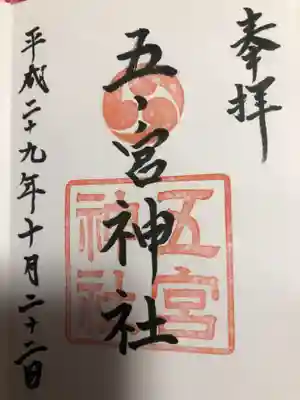 奉拝
五ノ宮神社
五宮
神社
平成二十九年十月二十二日